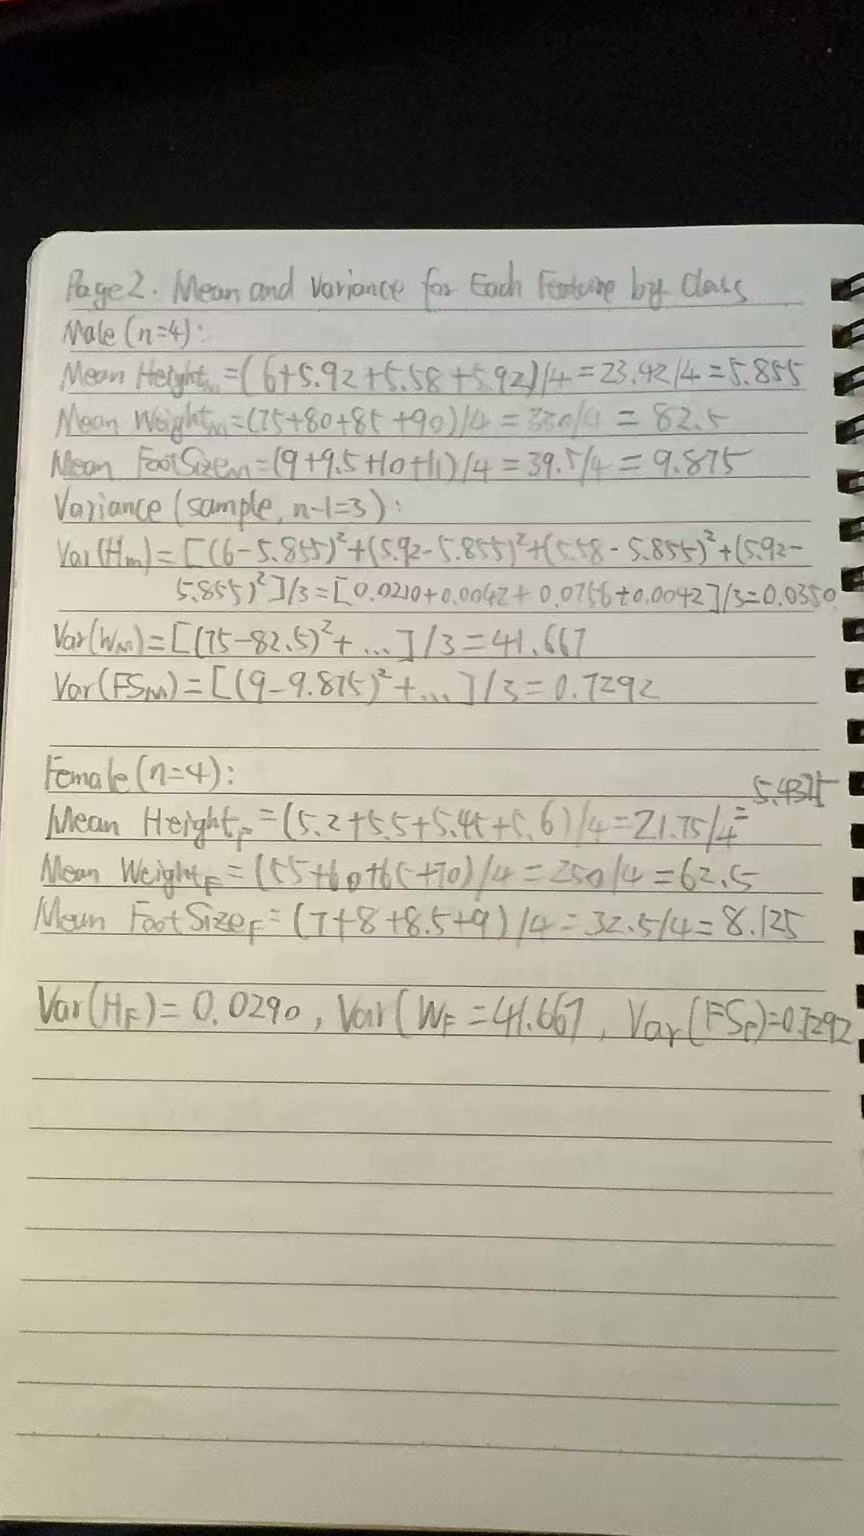 Page 2. Mean and Variance for Each Feature by Class
Male (n=4):
Mean Heightₘ=(6+5.92+5.58+5.92)/4=23.42/4=5.855
Mean Weightₘ=(75+80+85+90)/4=330/4=82.5
Mean FootSizeₘ=(9+9.5+10+11)/4=39.5/4=9.875
Variance (sample, n-1=3):
Var(Hₘ)=[(6-5.855)²+(5.92-5.855)²+(5.58-5.855)²+(5.92-
5.855)²]/3=[0.0210+0.0042+0.0756+0.0042]/3=0.0350
Var(Wₘ)=[(75-82.5)²+...]/3=41.667
Var(FSₘ)=[(9-9.875)²+...]/3=0.7292
Female (n=4):
Mean Height_F=(5.2+5.5+5.45+5.6)/4=21.75/4=5.4375
Mean Weight_F=(55+60+65+70)/4=250/4=62.5
Mean FootSize_F=(7+8+8.5+9)/4=32.5/4=8.125
Var(H_F)=0.0290, Var(W_F=41.667, Var(FS_F)=0.7292